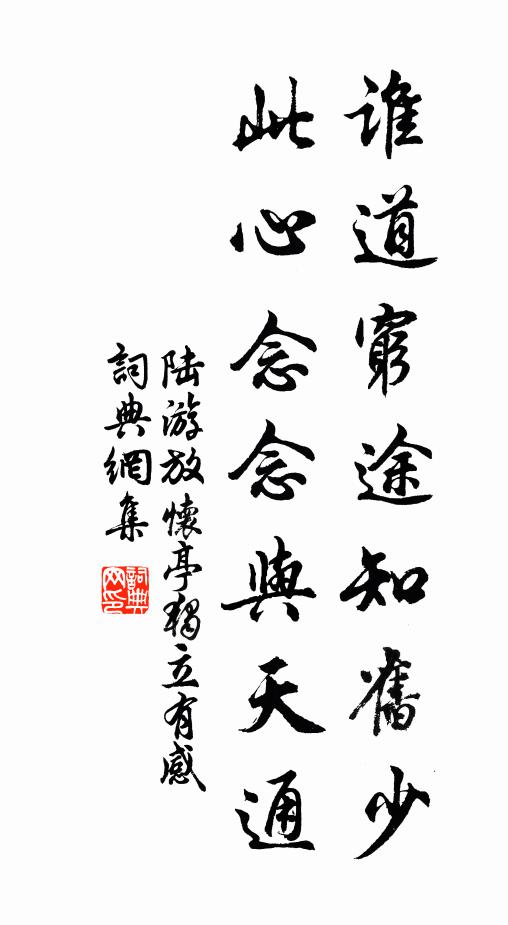 誰道窮途知舊少
此心念念與天通
陸游放懷亭獨立有感
詞典網集
詞典
网印